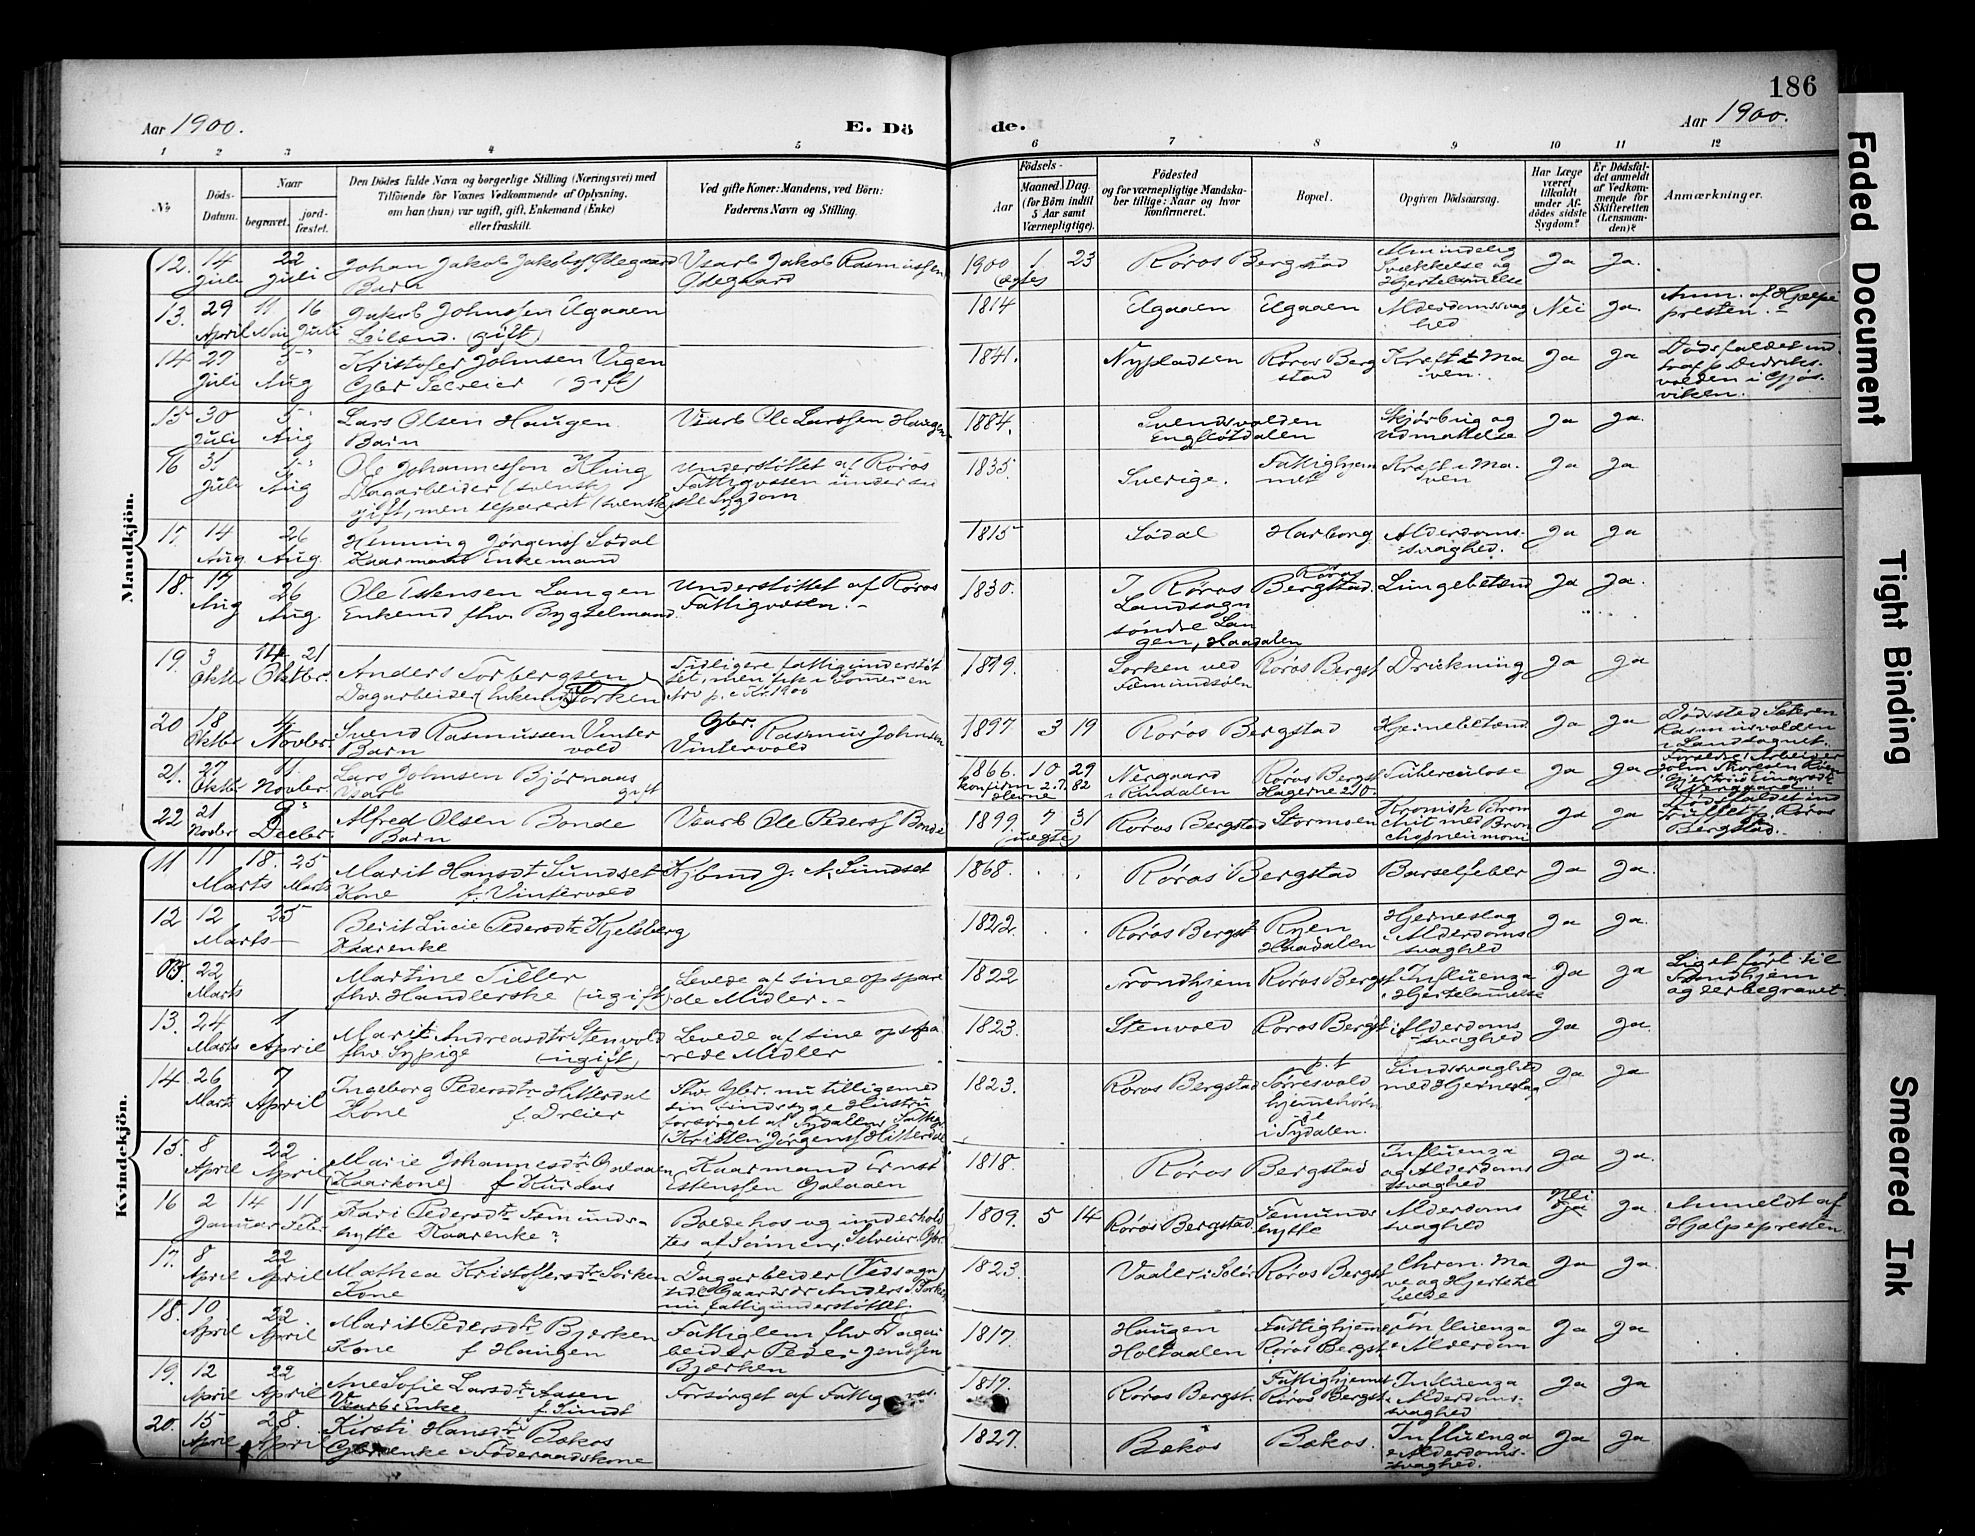 186
Aar 1900.
E. Dö
de.
Aar 1900.
1 2 3 4 5 6 7 8 9 10 11 12
No
Döds-Datum.
Naar
begravet.
jord-fæstet.
Den Dödes fulde Navn og borgerlige Stilling (Næringsvei) med
Tilföiende for Voxnes Vedkommende af Oplysning,
om han (hun) var ugift, gift, Enkemand (Enke)
eller fraskilt.
Ved gifte Koner: Mandens, ved Börn:
Faderens Navn og Stilling.
Födsels-
Aar
Maaned. Dag.
(for Börn indtil
5 Aar samt
Værnepligtige).
Födested
og for værnepligtige Mandska-
ber tillige: Naar og hvor
konfirmeret.
Bopæl.
Opgiven Dödsaarsag.
Har Læge
været
tilkaldt
under Af-
dödes sidste
Sygdom?
Er Dödsfal-
det anmeldt
af Vedkom-
mende for
Skifteretten
(Lensman-
den)?
Anmærkninger.
Mandkjön.
12. 14 Juli 22 Juli Johan Jakob Jakobss Ødegaard
Barn
Vaarb Jakob Rasmussen
Ødegaard
1900 1 23 Røros Bergstad
(ægte)
Almindelig
Svækkelse og
Hjertelammelse
Ja Ja.
13. 29 April 11 Mai 16 Juli Jakob Johnssen Elgaaen
Leilend. (gift)
1814 Elgaaen Elgaaen Alderdomssvag
hed
Nei Ja.
Anm. af Hjælpe
presten.
14 27 Juli 5 Aug Kristofer Johnsen Vigen
Gbr Selveier (gift)
1841. Nypladsen Røros Berg
stad
Kræft i Ma
ven.
Ja Ja
Dødsfaldet ind
traf p. Didriks
volden i Gjøs
viken.
15 30 Juli 5 Aug Lars Olsen Haugen
Barn
Vaarb Ole Larssen Haugen
1884. Svendsvolden
Engelötdalen
Skjørbug og
Udmattelse
Ja Ja.
16 31 Juli 5 Aug Ole Johannessøn Kling
Dagarbeider (svensk)
gift, men separeret (svensk)
Understøttet af Røros
Fattigvæsen under sid
ste Sygdom
1835 Sverige. Fattighjem
met
Kræft i Ma-
ven
Ja Ja
17. 14 Aug 26 Aug. Henning Jørgenss Sødal
Kaarmand Enkemand
1815 Sødal Harborg Alderdoms-
svaghed.
Ja Ja
18. 17 Aug 26 Aug. Ole Estensen Langen
Enkemd fhv. Bygselmand
Understøttet af Røros
Fattigvæsen.
1830. I Røros
Landsogn
søndre Lan
gen, Haadalen
Røros
Bergstad. Lungebetænd Ja Ja.
19. 3 Oktbr 14 21 Oktbr. Anders Torbergsen
Dagarbeider (Enkemd) Sorken
Tidligere fattigunderstøt
tet, men fik i Sommer en
Arv p. c Kr. 1900
1849. Sorken ved
Fæmundsøen
Røros Bergst Drukning Ja Ja
20 18 Oktbr 4 Novbr. Svend Rasmussen Vinter
Barn vold
Gbr. Rasmus Johnsen
Vintervold
1897 3 19 Røros Bergstad Hjernebetænd Ja Ja
Dødssted Seteren
Rasmusvolden
i Landsognet.
21. 27 Oktbr 11 Novbr. Lars Johnsen Bjørnaas
Vaarb gift
1866. 10 29
konfirm 2. 7. 82
Nergaard
i Rindalen
Røros Bergst
Hagerne 210.
Tuberculose Ja Ja
Forældre: Arbeider
22 21 Novbr 9 Decbr. Alfred Olsen Bonde
Barn
Vaarb Ole Peders Bonde
1899 7 31
(uægte)
Røros Bergstad Stormoen Kronisk Bron
chit med Bron
chopneumoni
Ja Ja
Dødsfaldet ind
truffet p. Røros
Bergstad.
Kvindekjön.
11 11 Marts 18. 25 Marts Marit Hansdt Sundset
Kone f. Vintervold
Kjbmd J. N. Sundset
1868. Røros Bergstad Barselfeber Ja Ja.
12 12 Marts 25 Berit Lucie Pedersdtr Kjelsberg
Kaarenke
1822. Røros Bergst Ryen
Haadalen
Hjerneslag
i Alderdoms
svaghed
Ja Ja.
22 Marts Martine Tiller
fhv. Handlerske (ugift)
Levede af sine opspare
de Midler.
1822 Trondhjem Røros Bergst Influenza
Hjertelammelse
Ja Ja
Liget ført til
Trondhjem
og der begravet.
13. 24 Marts 1 April Marit Andreasdtr Stenvold
fhv Sypige (ugift)
Levede af sine opspa
rede Midler
1823. Stenvold Røros Bergst Alderdoms
svaghed
Ja Ja.
14 26 Marts 7 April Ingeborg Pedersdtr Hitterdal
Kone f. Dreier
Fhv. Gbr. nu tilligemed
sin sindssyge Hustru
forsørget af Tydallens Fattigv
(Kristen Jørgenss Hitterdal
1823. Røros Bergstad p. t.
Torresvold
hjemmehøren
de
i Tydalen.
Sindssvaghed
med Hjerneslag
Ja Ja
15. 8 April 22 April Marie Johannesdtr Galaaen
(Kaarkone) f. Kurdas
Kaarmand Ernst
Estenssen Galaaen
1818. Røros Bergstad Influenza
og Alderdoms
svaghed
Ja Ja.
16 2 Januar 14 11 Feb. Kari Pedersdtr Fæmunds-
hytte Kaarenke
Boede hos og underhold
tes af Sønnen. Selveier. Gbr.
1809. 5 14 Røros Bergstad. Femunds
hytte
Alderdoms
svaghed
Nei Ja.
Anmeldt af
Hjælpepresten.
17. 8 April 22 April Mathea Kristoffersdtr Sorken
Kone
Dagarbeider (Vedsager)
tidl Gaardbr Anders T. Sorken
nu fattigunderstøttet.
1823. Vaaler i Solør Røros Bergst Chron. Ma
ve og Hjertelid
Ja Ja.
18. 10 April 22 April Marit Pedersdtr Bjerken
Kone f. Haugen
Fattiglem fhv Dagar
beider Peder Jenssen
Bjerken
1817. Haugen
Holtaalen
Fattighjemmet
Røros Bergst
Influenza
Alderdom
Ja Ja
19. 12 April 22 April Ane Sofie Larsdtr Aasen
Vaarb. Enke. f. Sundt
Forsørget af Fattigvæs.
1817. Røros Bergst. Fattighjemmet
Røros Bergst.
Influenza
Alderdoms-
svaghed
Ja Ja
20. 15 April 28. April Kirsti Hansdtr Bækos
Gbrenke Föderaadskone
1827. Bækos Bækos. Influenza
Alderdoms-
svaghed.
Ja Ja
Faded Document
Tight Binding
Smeared Ink